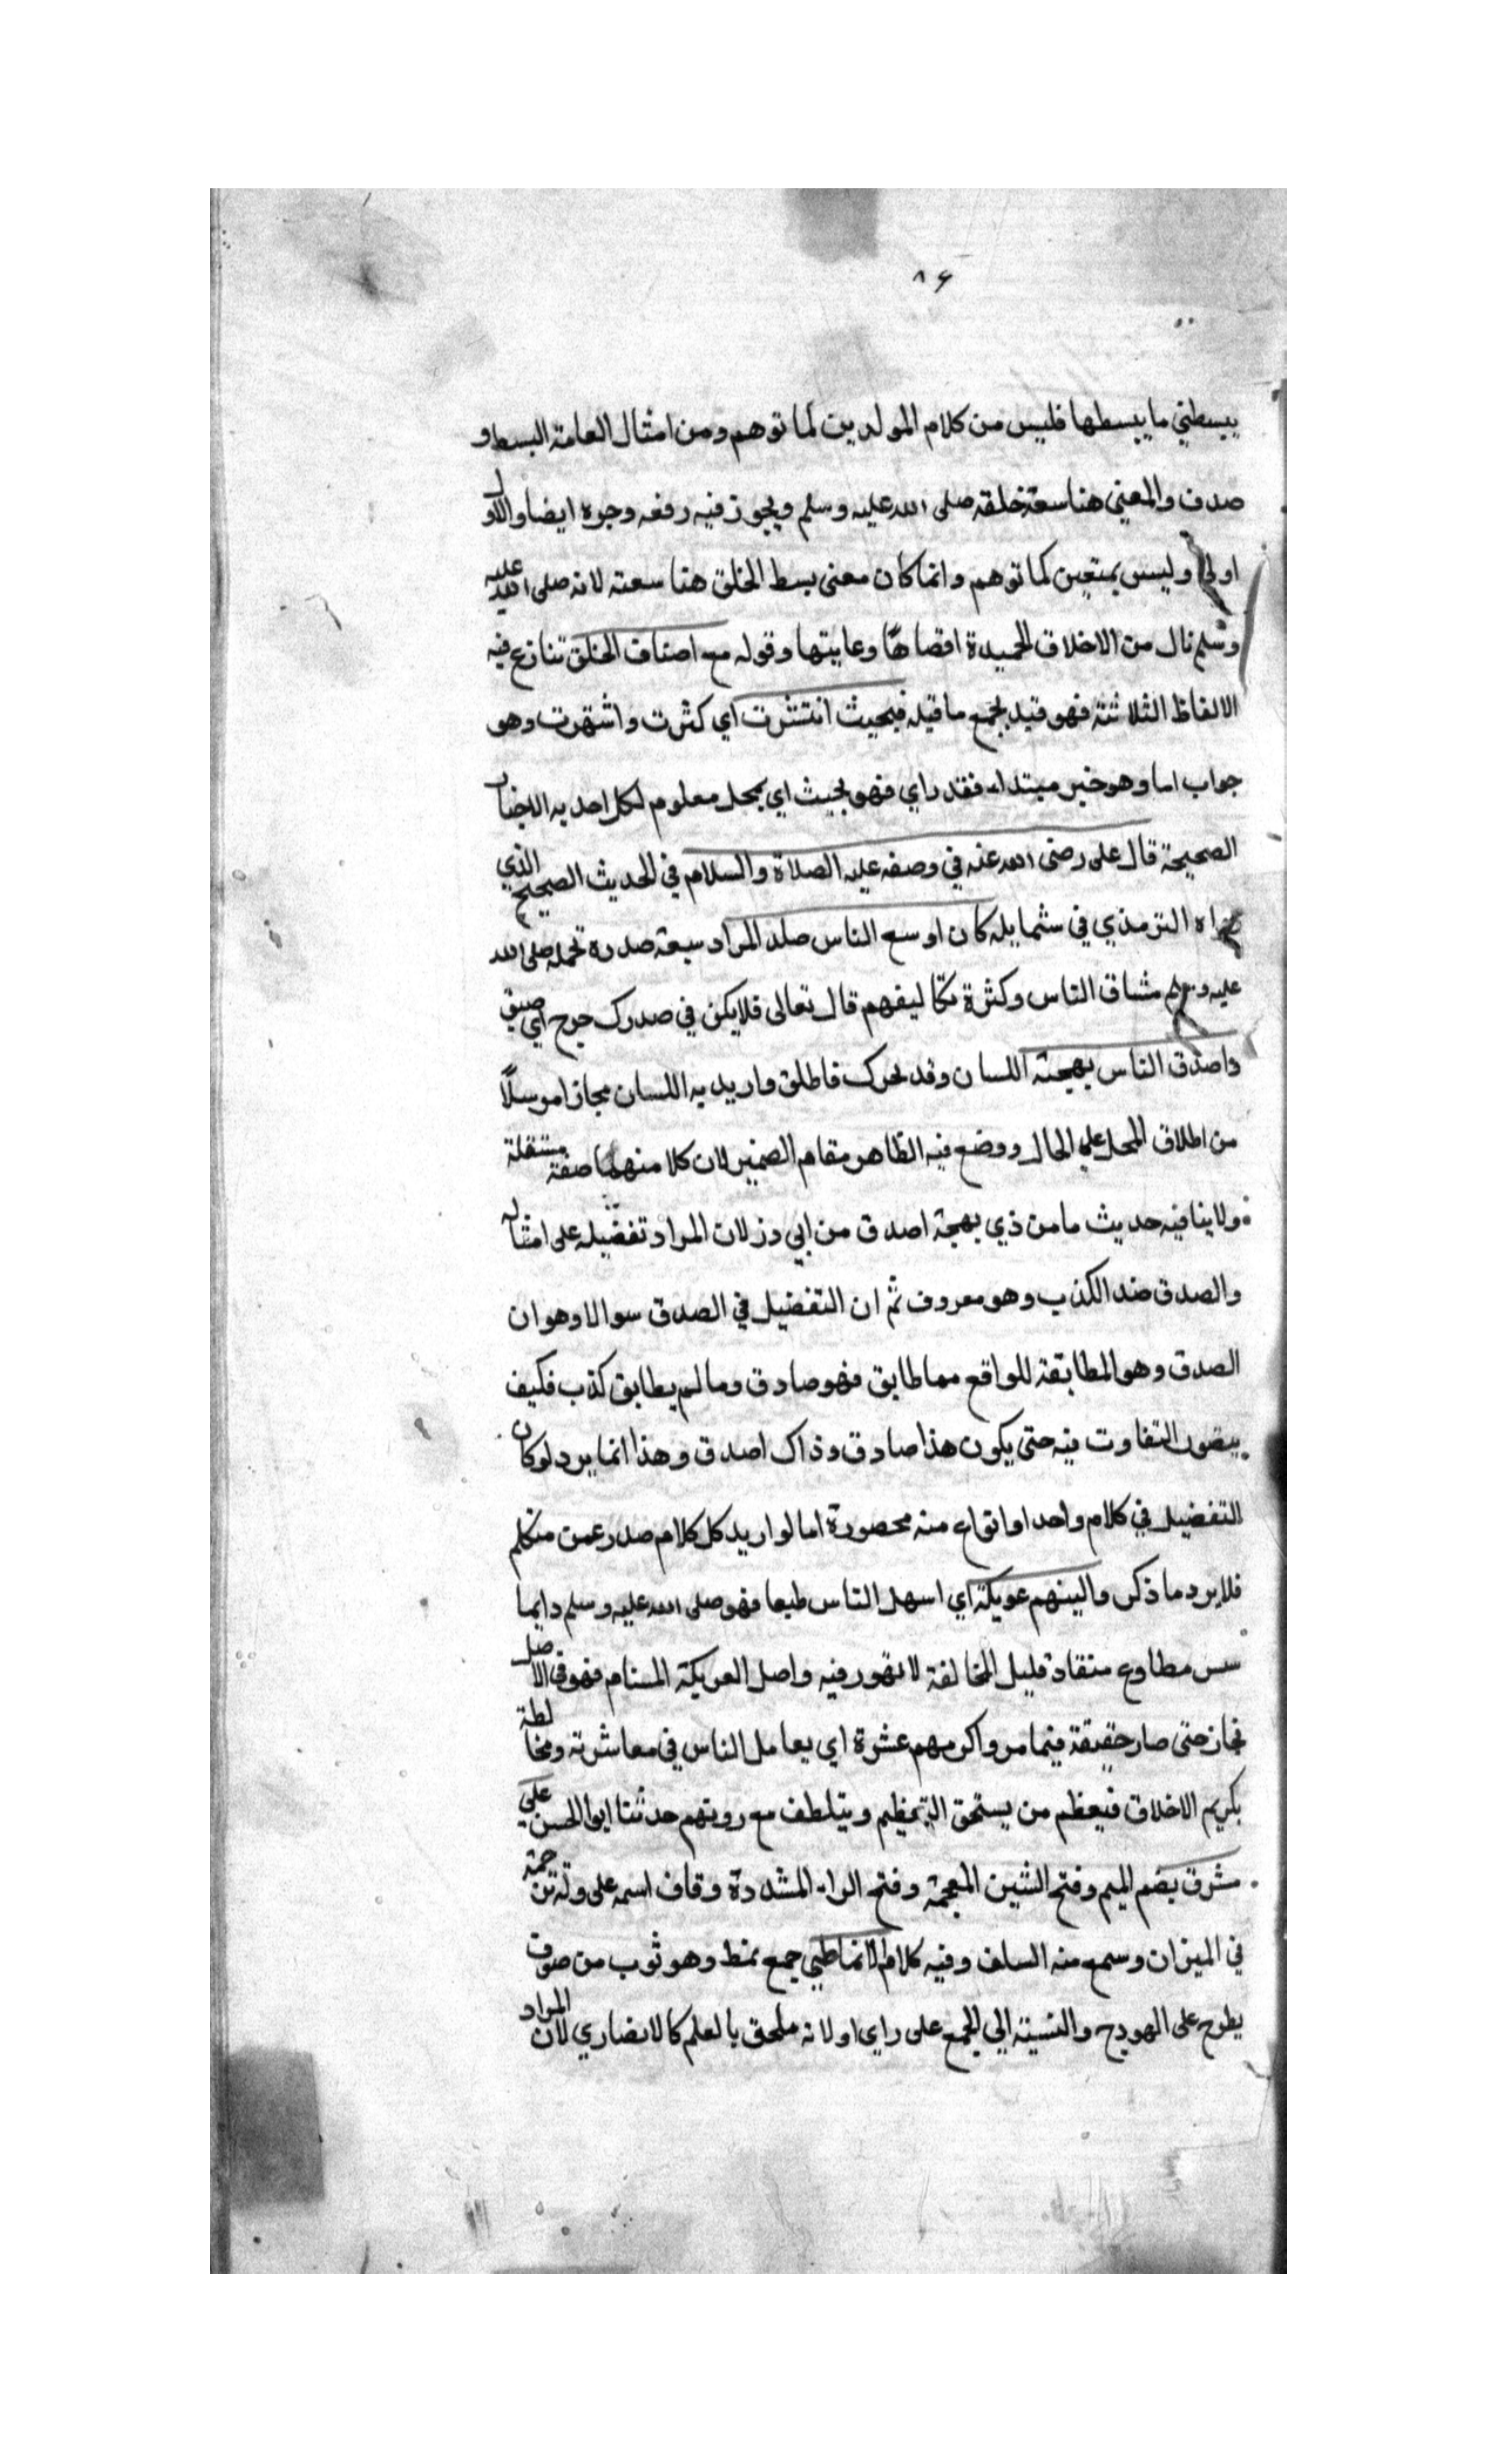 ٨٤
يبسطني ما يبسطها فليس من كلام المولدين كما توهم ومن امثال العامة البسط و
صدف والمعنى هنا سعة خلقه صلى الله عليه وسلم ويجوز فيه رفعه وجره ايضا والاول
اولى وليس بمتعين كما توهم وانما كان معنى بسط الخلق هنا سعته لانه صلى الله عليه
وسلم نال من الاخلاق الحميدة اقصاها وغايتها وقوله مع اصناف الخلق تنازع فيه
الالفاظ الثلاثة فهو قيد لجمع ما قبله فبحيث انتشرت اي كثرت واشتهرت وهو
جواب اما وهو خبر مبتداء فقد راي فهو بحيث اي بمحل معلوم لكل احد به الاخبار
الصحيحة قال على رضى الله عنه في وصفه عليه الصلاة والسلام في الحديث الصحيح الذي
رواه الترمذي في شمايله كان اوسع الناس صدر المراد سعة صدره تحمله صلى الله
عليه وسلم مشاق الناس وكثرة تكاليفهم قال تعالى فلا يكن في صدرك حرج اي ضيق
واصدق الناس بهجة اللسان وقد يحرك فاطلق واريد به اللسان مجازا مرسلاً
من اطلاق المحل على الحال ووضع فيه الظاهر مقام الضمير لان كلا منهما صفة مستقلة
ولا ينافيه حديث ما من ذي بهجة اصدق من ابي ذر لان المراد تفضيله على امثاله
والصدق ضد الكذب وهو معروف ثم ان التفضيل في الصدق سوالا وهو ان
الصدق وهو المطابقة للواقع مما طابق فهو صادق وما لم يطابق كذب فكيف
يتصور التفاوت فيه حتى يكون هذا صادق وذاك اصدق وهذا انما يرد لو كان
التفضيل في كلام واحد او انواع منه محصورة اما لو اريد كل كلام صدر عمن متكلم
فلا يرد ما ذكر والينهم عريكة اي اسهل الناس طبعا فهو صلى الله عليه وسلم دايما
سس مطاوع منقاد قليل المخالفة لا تهور فيه واصل العريكة السنام فهو في الاصل
مجاز حتى صار حقيقة فيما مر واكرمهم عشرة اي يعامل الناس في معاشرته ومخالطة
بكريم الاخلاق فيعظم من يستحق التعظيم ويتلطف مع رويهم حدثنا ابو الحسن على
مشرق بضم الميم وفتح الشين المعجمة وفتح الراء المشددة وقاف اسمه على وله ترجمة
في الميزان وسمع منه السلف وفيه كلام الانماطي جمع نمط وهو ثوب من صوف
يطرح على الهودج والنسبة الي الجمع على راي او لانه ملحق بالعلم كالانصاري لان المراد